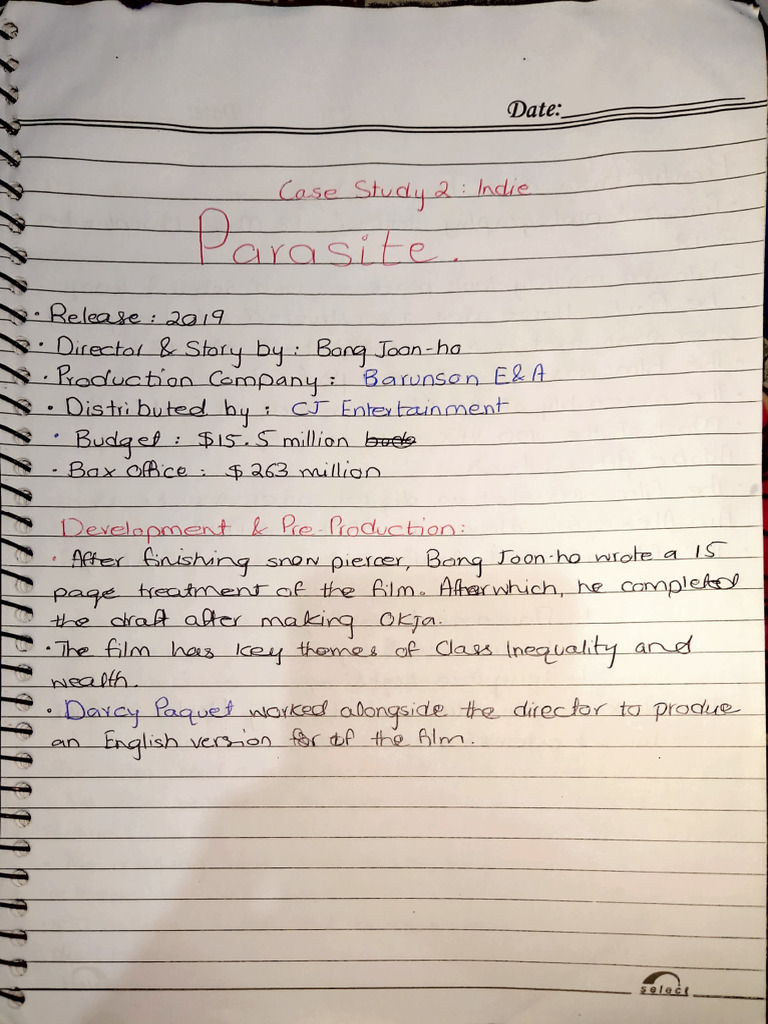 Date:
Case Study 2 : Indie
Parasite.
· Release : 2019
· Director & Story by : Bong Joon-ho
· Production Company : Barunson E&A
· Distributed by : CJ Entertainment
· Budget : $15.5 million
· Box office : $263 million
Development & Pre-Production:
· After finishing snow piercer, Bong Joon-ho wrote a 15
page treatment of the film. After which, he completed
the draft after making Okja.
· The film has key themes of Class Inequality and
wealth.
· Darcy Paquet worked alongside the director to produe
an English version for of the film.
select